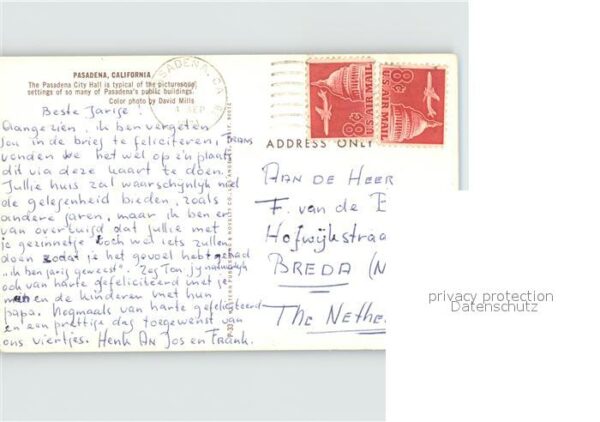 PASADENA, CALIFORNIA
The Pasadena City Hall is typical of the picturesque
settings of so many of Pasadena's public buildings.
Color photo by David Mills
PASADENA, CA
SEP
U.S. AIR MAIL 8¢
U.S. AIR MAIL 8¢
ADDRESS ONLY
Beste Jarige!
Aangezien, ik ben vergeten
Jou in de brief te feliciteren, Frans
vonden we het wel op z'n plaats
dit via deze kaart te doen.
Jullie huis zal waarschynlyk niet
de gelegenheid bieden, zoals
andere jaren, maar ik ben er
van overtuigd dat jullie met
je gezinnetje toch wel iets zullen
doen zodat je het gevoel hebt gehad
"ik ben jarig geweest". Zeg Ton jy natuurlyk
ook van harte gefeliciteerd met je
man en de kinderen met hun
papa. Nogmaals van harte gefeliciteerd
en een prettige dag toegewenst van
ons viertjes. Henk An Jos en Frank.
AAN DE HEER
F. van de
Hofwijkstraa
BREDA (N
The Nethe
privacy protection
Datenschutz